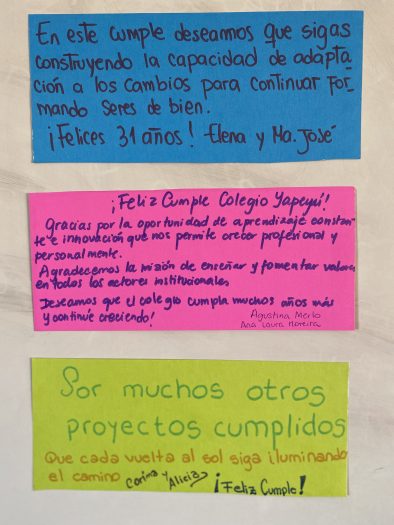 En este cumple deseamos que sigas
construyendo la capacidad de adapta_
ción a los cambios para continuar for_
mando seres de bien.
¡Felices 31 años! Elena y Ma. José
¡Feliz Cumple Colegio Yapeyú!
Gracias por la oportunidad de aprendizaje constan-
te e innovación que nos permite crecer profesional y
personalmente.
Agradecemos la misión de enseñar y fomentar valores
en todos los actores institucionales
Deseamos que el colegio cumpla muchos años más
y continúe creciendo!
Agustina Merlo
Ana Laura Moreira
Por muchos otros
proyectos cumplidos
Que cada vuelta al sol siga iluminando
el camino Corina y Alicia ¡Feliz Cumple!